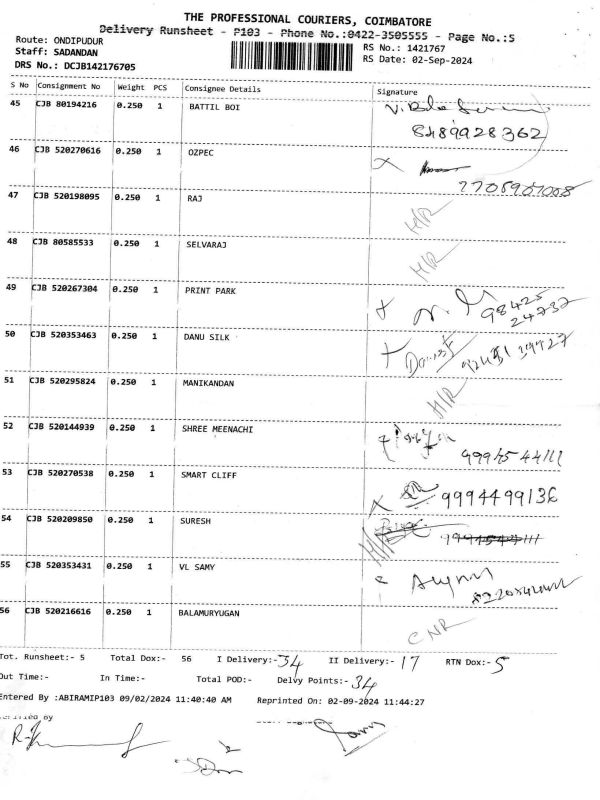 THE PROFESSIONAL COURIERS, COIMBATORE
Delivery Runsheet - P103 - Phone No.:0422-3505555 - Page No.:5
Route: ONDIPUDUR
RS No.: 1421767
Staff: SADANDAN
RS Date: 02-Sep-2024
DRS No.: DCJB142176705
S No Consignment No Weight PCS Consignee Details Signature
45 CJB 80194216 0.250 1 BATTIL BOI
8489928362
46 CJB 520270616 0.250 1 OZPEC
47 CJB 520198095 0.250 1 RAJ H/R
48 CJB 80585533 0.250 1 SELVARAJ H/R
49 CJB 520267304 0.250 1 PRINT PARK
98425
24737
50 CJB 520353463 0.250 1 DANU SILK
51 CJB 520295824 0.250 1 MANIKANDAN H/R
52 CJB 520144939 0.250 1 SHREE MEENACHI
9994544111
53 CJB 520270538 0.250 1 SMART CLIFF
54 CJB 520209850 0.250 1 SURESH H/R
55 CJB 520353431 0.250 1 VL SAMY
56 CJB 520216616 0.250 1 BALAMURYUGAN CNR
Tot. Runsheet:- 5 Total Dox:- 56 I Delivery:- 34 II Delivery:- 17 RTN Dox:- 5
Out Time:- In Time:- Total POD:- Delvy Points:- 34
Entered By :ABIRAMIP103 09/02/2024 11:40:40 AM Reprinted On: 02-09-2024 11:44:27